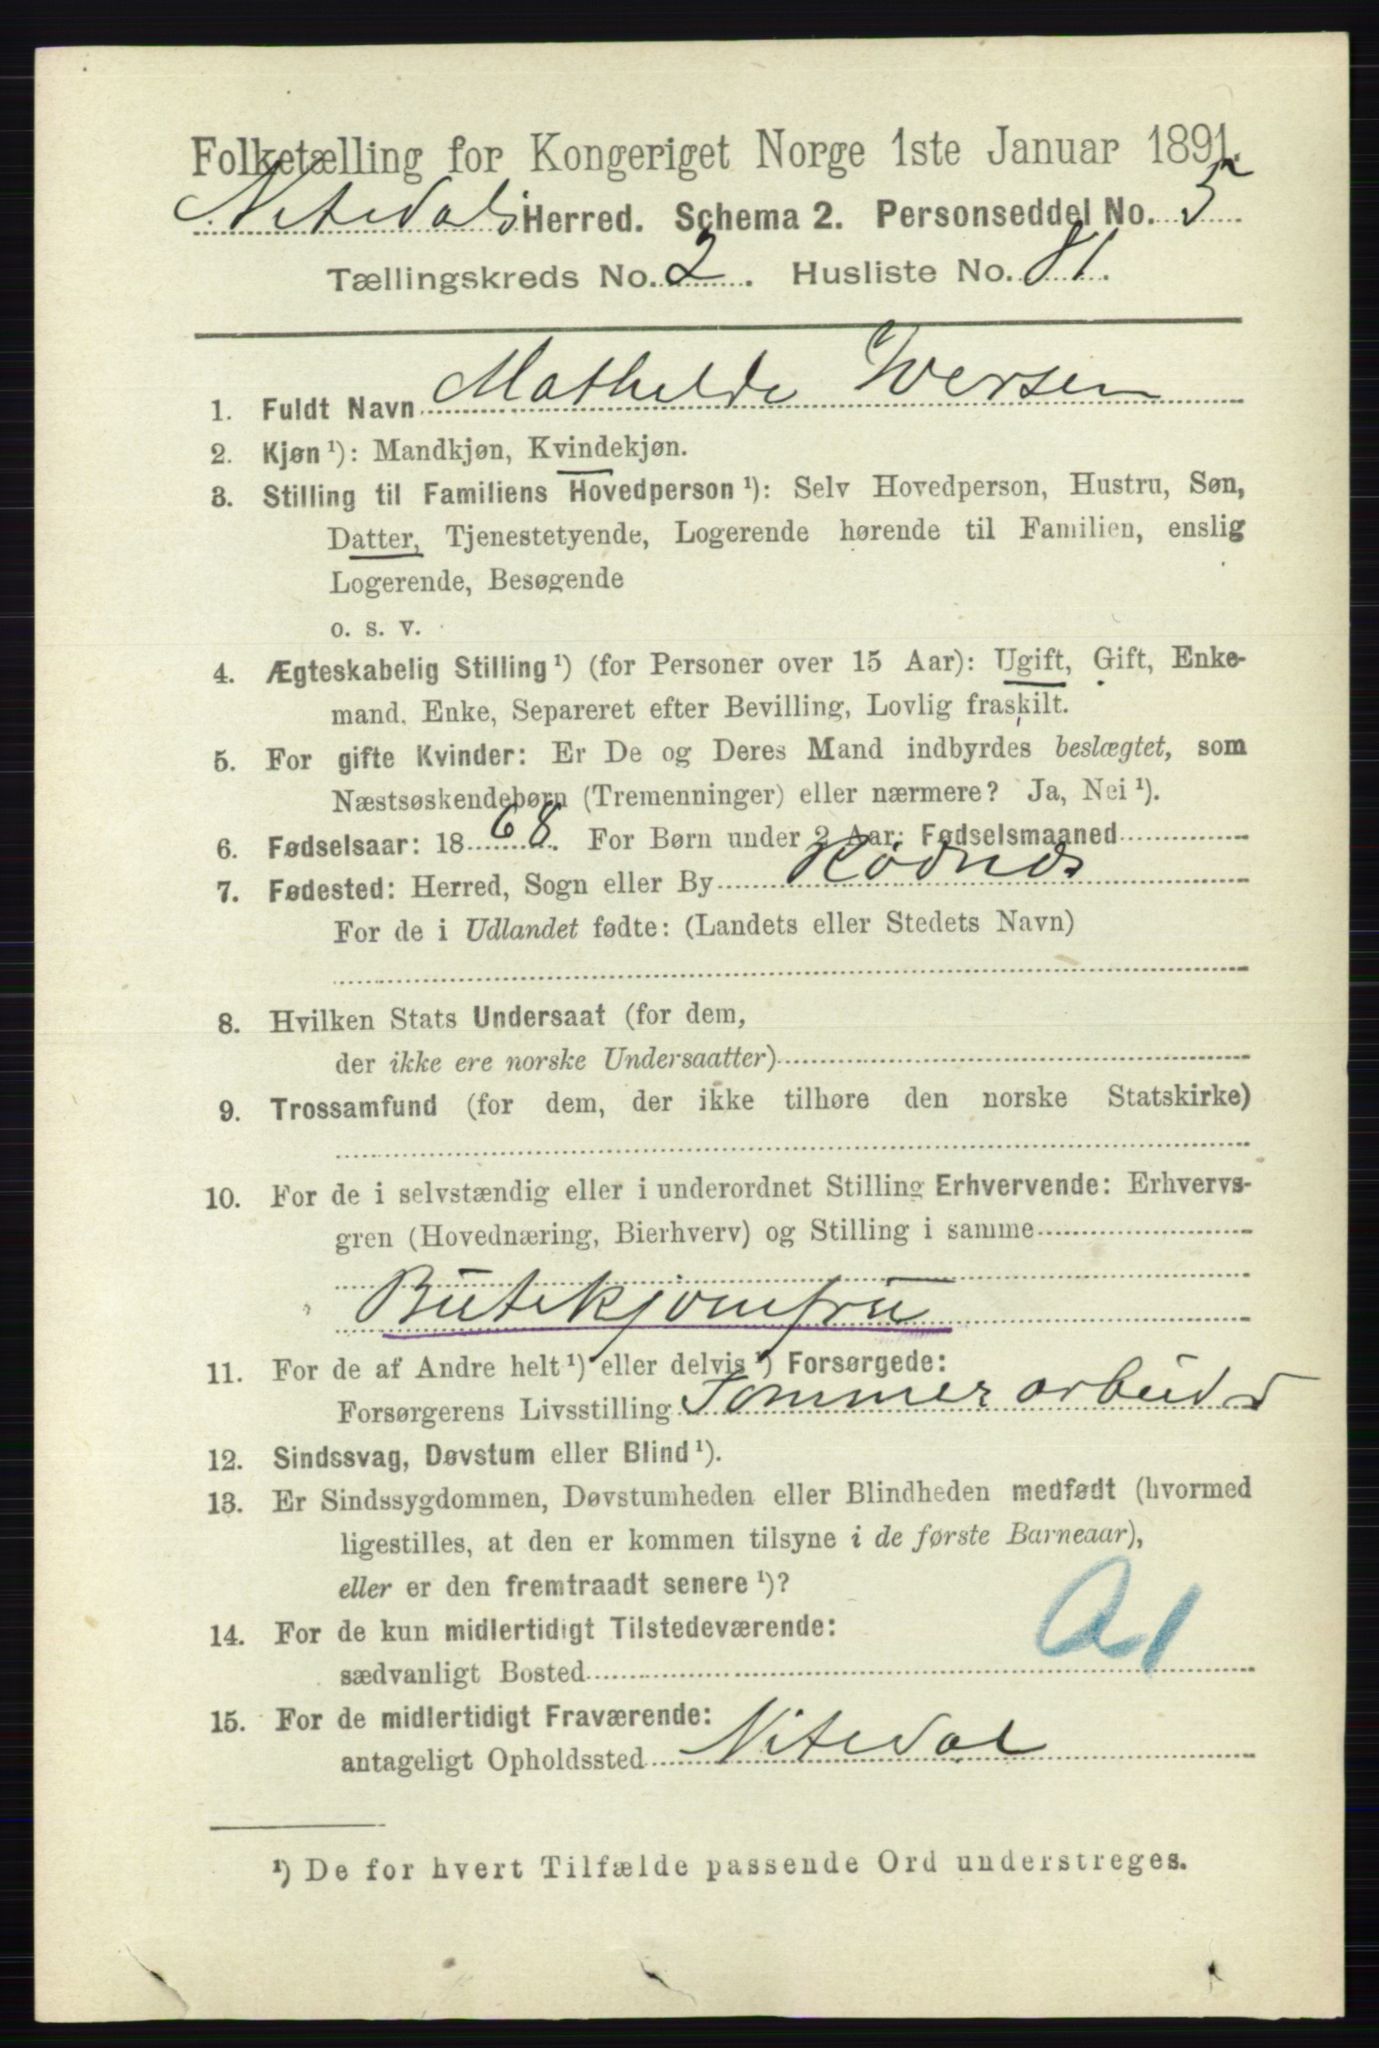 Folketælling for Kongeriget Norge 1ste Januar 1891.
Nitedals Herred. Schema 2. Personseddel No. 5
Tællingskreds No. 2. Husliste No. 81.
1. Fuldt Navn Mathilde Iversen
2. Kjøn ¹): Mandkjøn, Kvindekjøn.
3. Stilling til Familiens Hovedperson ¹): Selv Hovedperson, Hustru, Søn,
Datter, Tjenestetyende, Logerende hørende til Familien, enslig
Logerende, Besøgende
o. s. v.
4. Ægteskabelig Stilling ¹) (for Personer over 15 Aar): Ugift, Gift, Enke-
mand, Enke, Separeret efter Bevilling, Lovlig fraskilt.
5. For gifte Kvinder: Er De og Deres Mand indbyrdes beslægtet, som
Næstsøskendebørn (Tremenninger) eller nærmere? Ja, Nei ¹).
6. Fødselsaar: 1868. For Børn under 2 Aar: Fødselsmaaned
7. Fødested: Herred, Sogn eller By Rødnes
For de i Udlandet fødte: (Landets eller Stedets Navn)
8. Hvilken Stats Undersaat (for dem,
der ikke ere norske Undersaatter)
9. Trossamfund (for dem, der ikke tilhøre den norske Statskirke)
10. For de i selvstændig eller i underordnet Stilling Erhvervende: Erhvervs-
gren (Hovednæring, Bierhverv) og Stilling i samme
Butikjomfru
11. For de af Andre helt ¹) eller delvis ¹) Forsørgede:
Forsørgerens Livsstilling
12. Sindssvag, Døvstum eller Blind ¹).
13. Er Sindssygdommen, Døvstumheden eller Blindheden medfødt (hvormed
ligestilles, at den er kommen tilsyne i de første Barneaar),
eller er den fremtraadt senere ¹)?
14. For de kun midlertidigt Tilstedeværende:
sædvanligt Bosted
15. For de midlertidigt Fraværende:
antageligt Opholdssted Nitedal
¹) De for hvert Tilfælde passende Ord understreges.